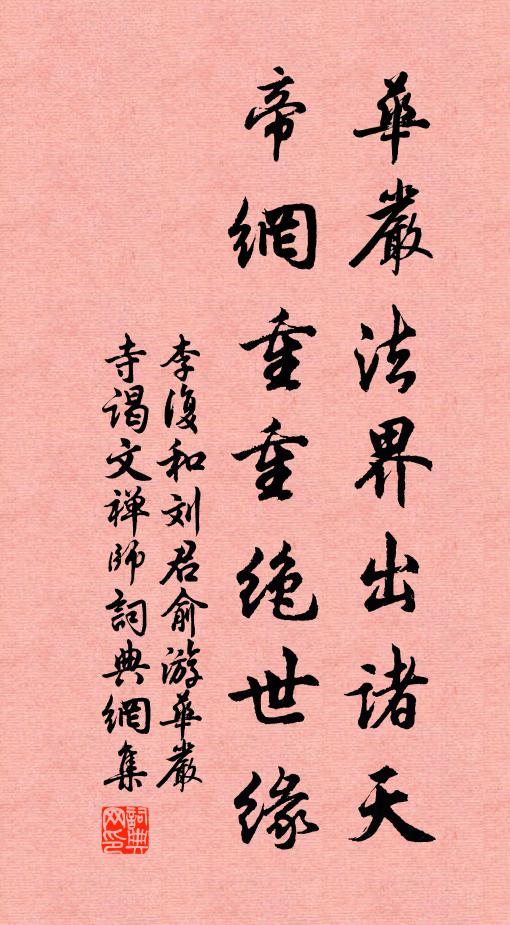 華嚴法界出諸天
帝網重重絶世緣
李復和刘君俞游華嚴
寺謁文禅師詞典網集
詞典网印